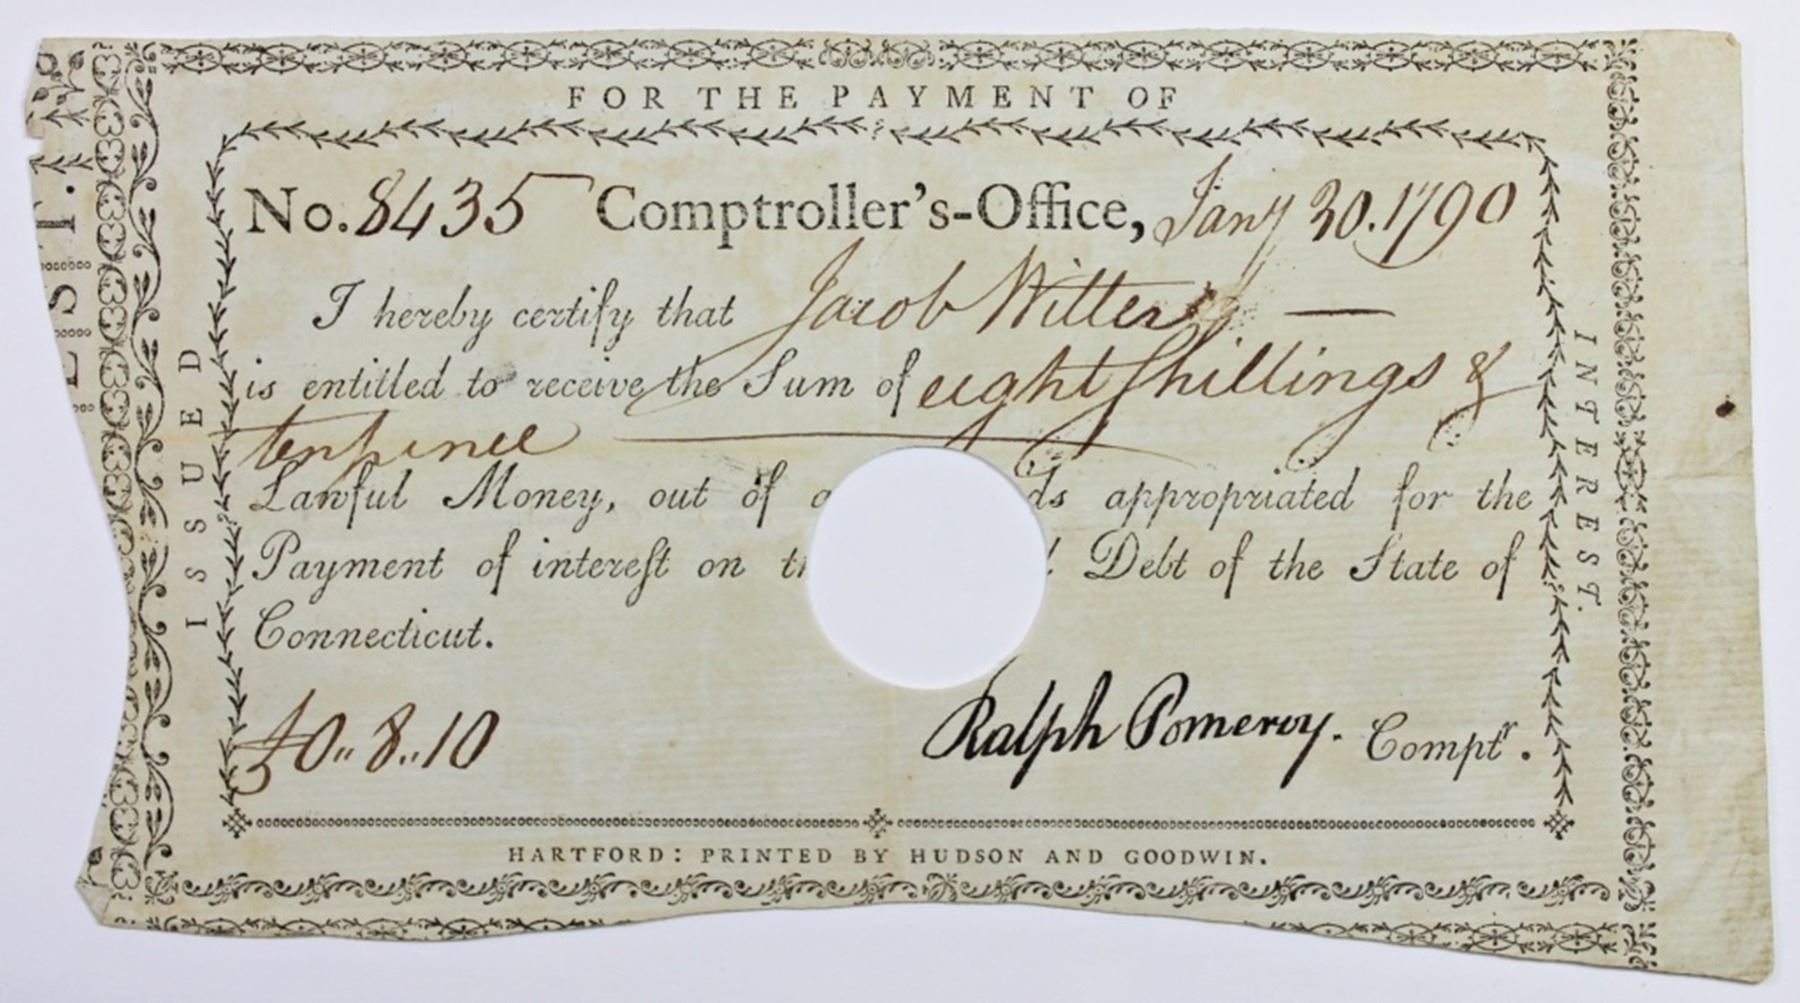 FOR THE PAYMENT OF
No. 8435 Comptroller's-Office, Jany 30. 1790
I hereby certify that Jacob Witter
is entitled to receive the Sum of eight shillings &
tenpence
Lawful Money, out of ds appropriated for the
Payment of intereſt on Debt of the State of
Connecticut.
£0..8..10
Ralph Pomeroy. Comptr.
HARTFORD: PRINTED BY HUDSON AND GOODWIN.
ISSUED
INTEREST.
EST.